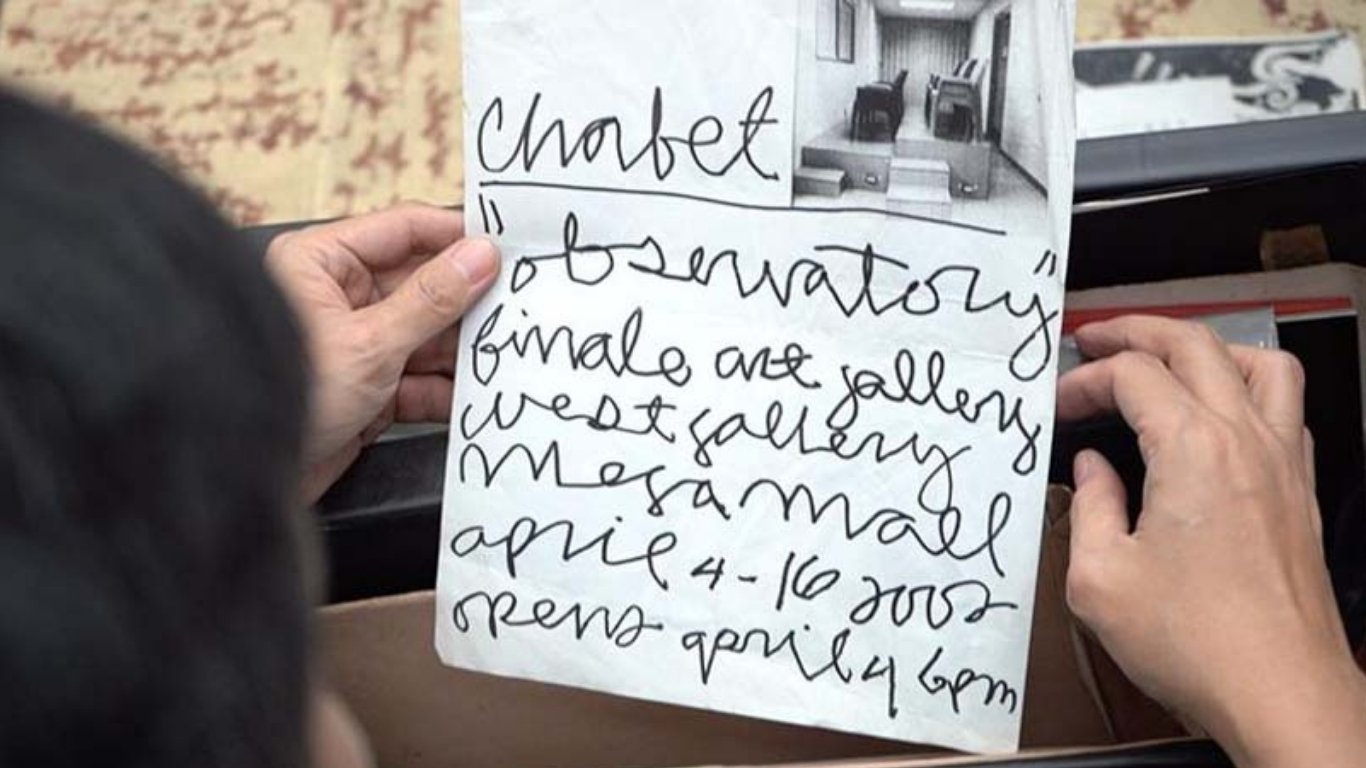 Chabet
"observatory"
finale art gallery
west gallery
megamall
april 4-16 2002
opens april 4 6pm